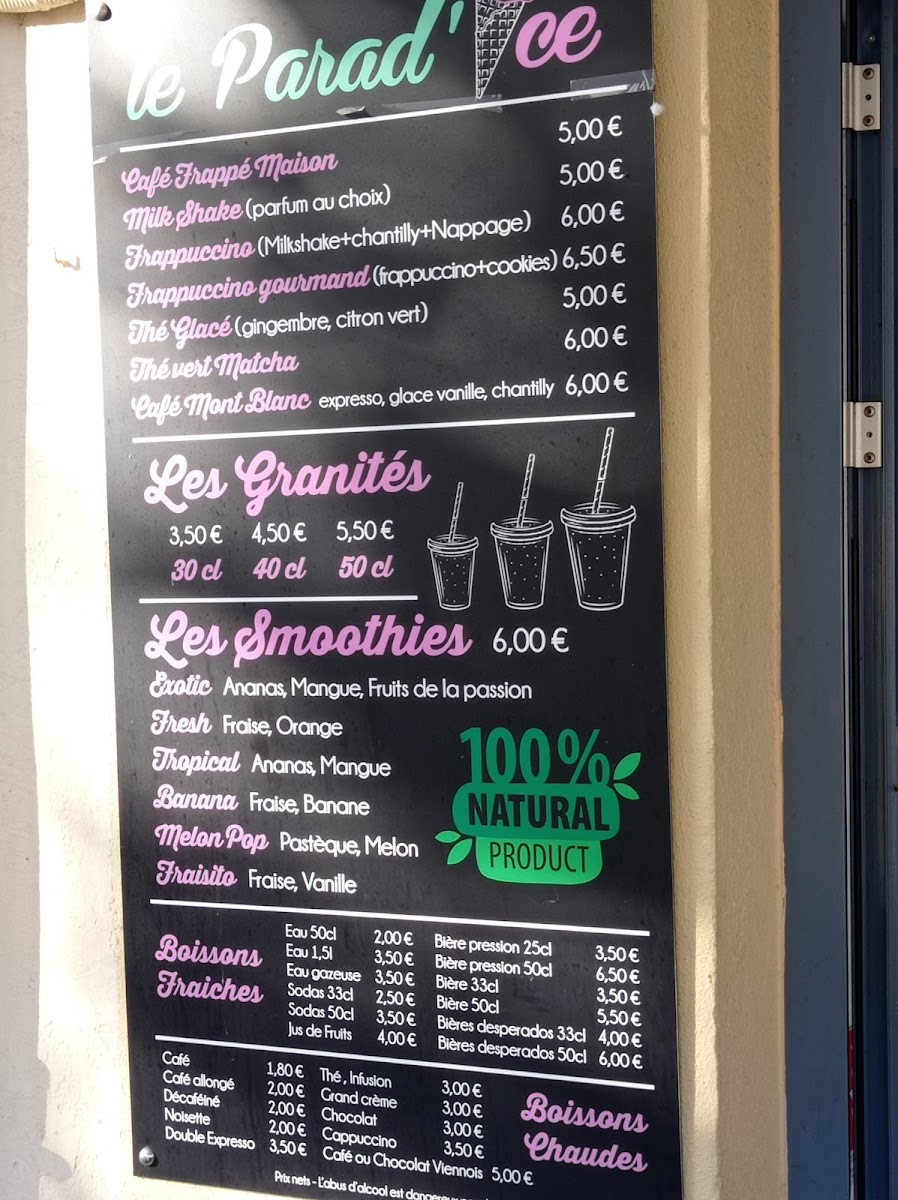 le Parad'Ice
Café Frappé Maison 5,00 €
Milk Shake (parfum au choix) 5,00 €
Frappuccino (Milkshake+chantilly+Nappage) 6,00 €
Frappuccino gourmand (frappuccino+cookies) 6,50 €
Thé Glacé (gingembre, citron vert) 5,00 €
Thé vert Matcha 6,00 €
Café Mont Blanc expresso, glace vanille, chantilly 6,00 €
Les Granités
3,50 € 4,50 € 5,50 €
30 cl 40 cl 50 cl
Les Smoothies 6,00 €
Exotic Ananas, Mangue, Fruits de la passion
Fresh Fraise, Orange
Tropical Ananas, Mangue
Banana Fraise, Banane
Melon Pop Pastèque, Melon
Fraisito Fraise, Vanille
100%
NATURAL
PRODUCT
Boissons
Fraiches
Eau 50cl 2,00 €
Eau 1,5l 3,50 €
Eau gazeuse 3,50 €
Sodas 33cl 2,50 €
Sodas 50cl 3,50 €
Jus de Fruits 4,00 €
Bière pression 25cl 3,50 €
Bière pression 50cl 6,50 €
Bière 33cl 3,50 €
Bière 50cl 5,50 €
Bières desperados 33cl 4,00 €
Bières desperados 50cl 6,00 €
Café 1,80 €
Café allongé 2,00 €
Décaféiné 2,00 €
Noisette 2,00 €
Double Expresso 3,50 €
Thé , Infusion 3,00 €
Grand crème 3,00 €
Chocolat 3,00 €
Cappuccino 3,50 €
Café ou Chocolat Viennois 5,00 €
Boissons
Chaudes
Prix nets - L'abus d'alcool est